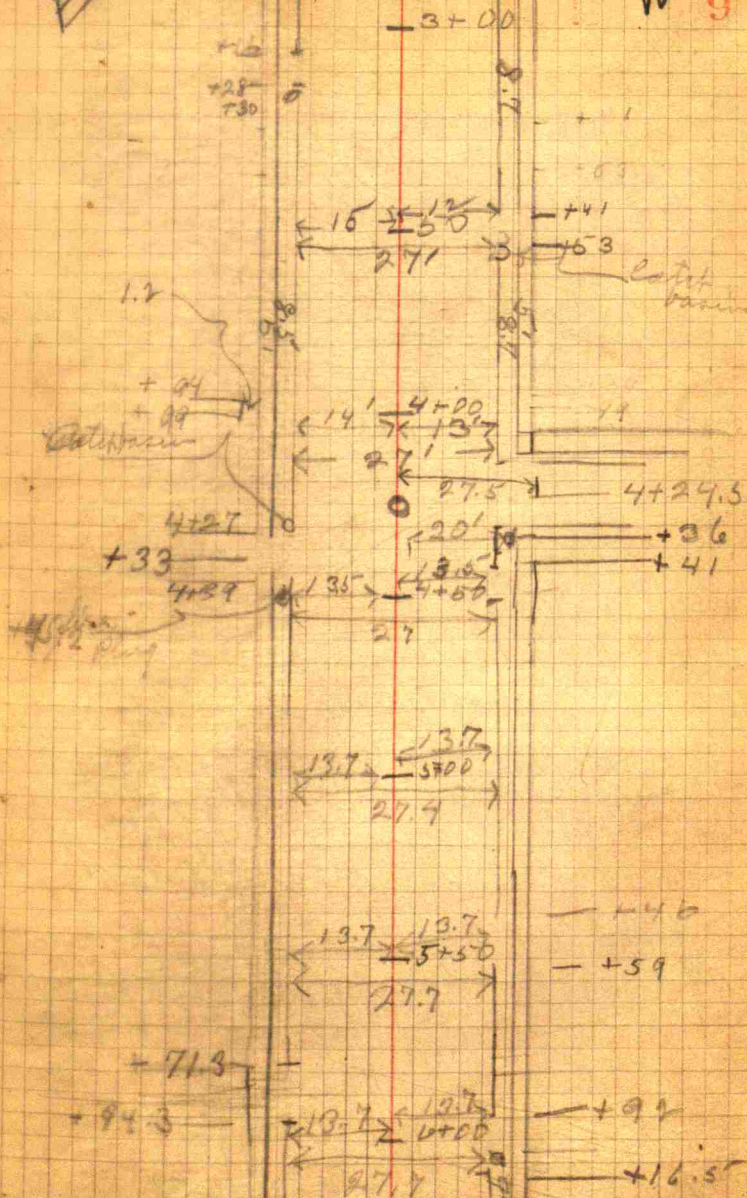 3+00
8.7
+28
+30
15
12
50
+41
27'
+53
Catch
basin
1.2
8.5'
5'
5'
8.7
+94
+99
Catchbasin
14'
4+00
13'
27'
27.5
4+24.5
4+27
20'
+36
+33
13.5
+41
4+39
13.5
4+50
27
plug
13.7
13.7
5+00
27.4
+46
13.7
13.7
5+50
+59
27.7
+71.3
+94.3
13.7
13.7
6+00
+92
27.7
+16.5